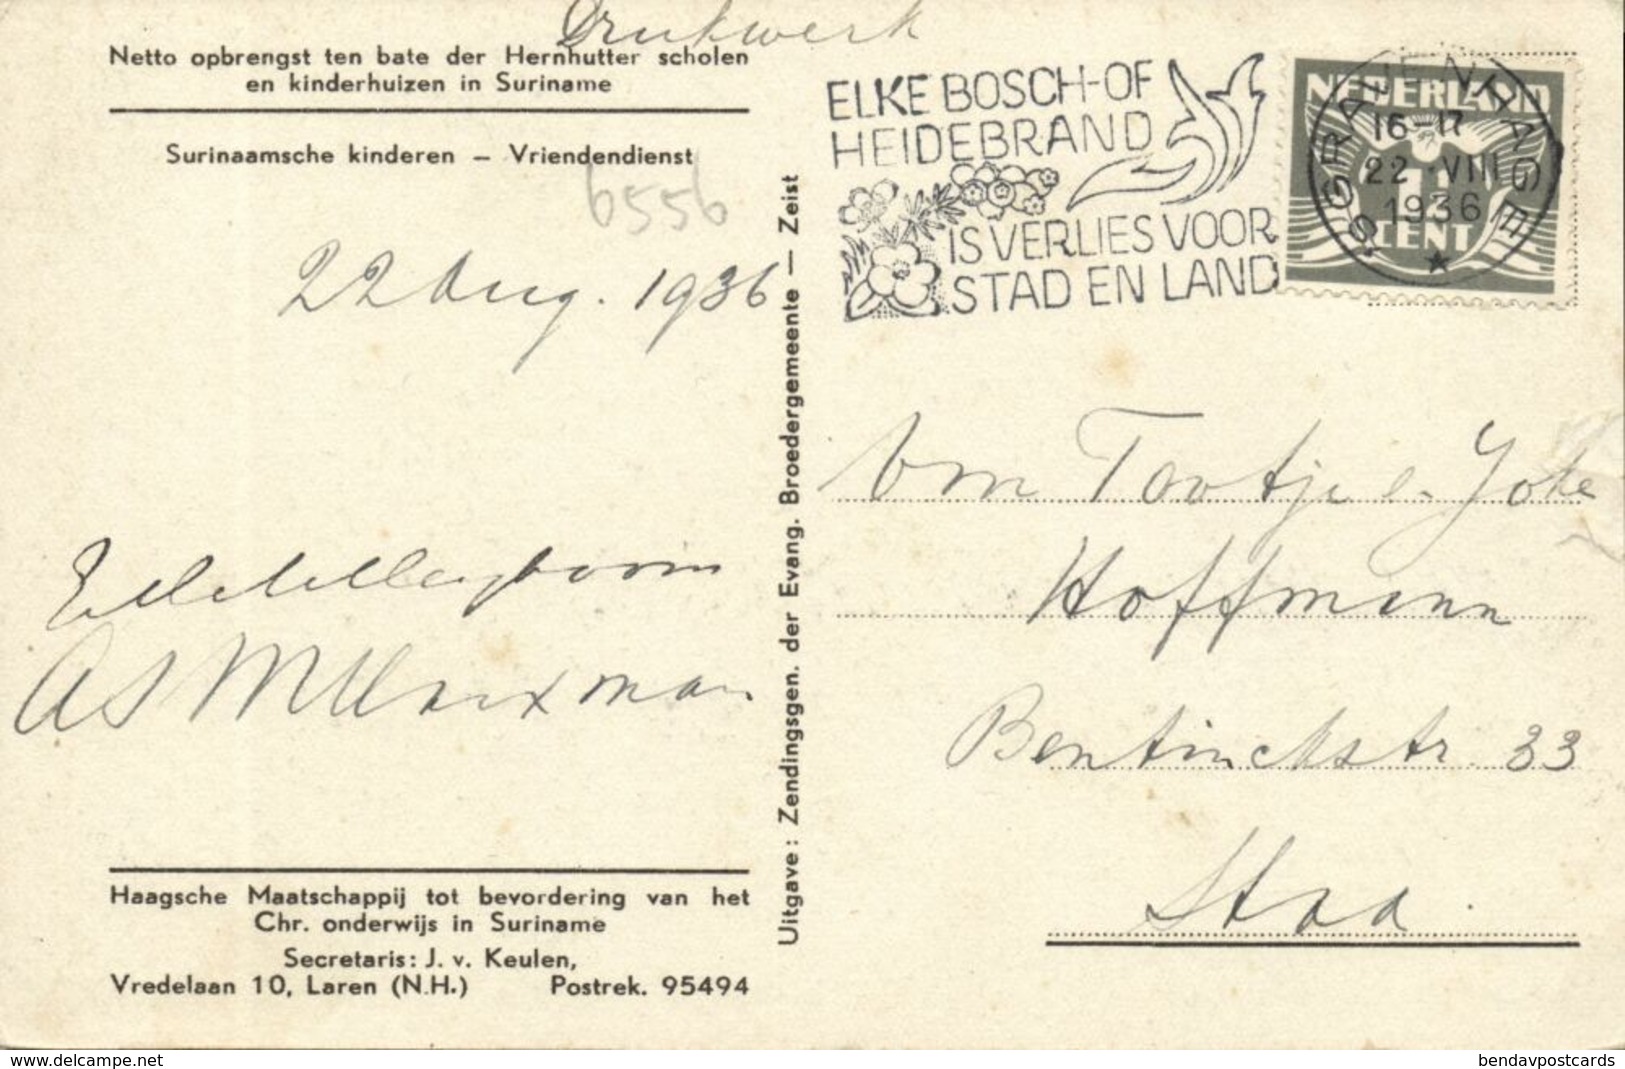 Drukwerk
Netto opbrengst ten bate der Hernhutter scholen
en kinderhuizen in Suriname
Surinaamsche kinderen – Vriendendienst
6556
22 Aug. 1936
Haagsche Maatschappij tot bevordering van het
Chr. onderwijs in Suriname
Secretaris: J. v. Keulen,
Vredelaan 10, Laren (N.H.) Postrek. 95494
Uitgave: Zendingsgen. der Evang. Broedergemeente — Zeist
ELKE BOSCH-OF
HEIDEBRAND
IS VERLIES VOOR
STAD EN LAND
NEDERLAND
1½
CENT
'SGRAVENHAGE
16-17
22 VIII
1936
Tootje e. Joke
Hoffmann
Bentinckstr. 33
www.delcampe.net
bendavpostcards